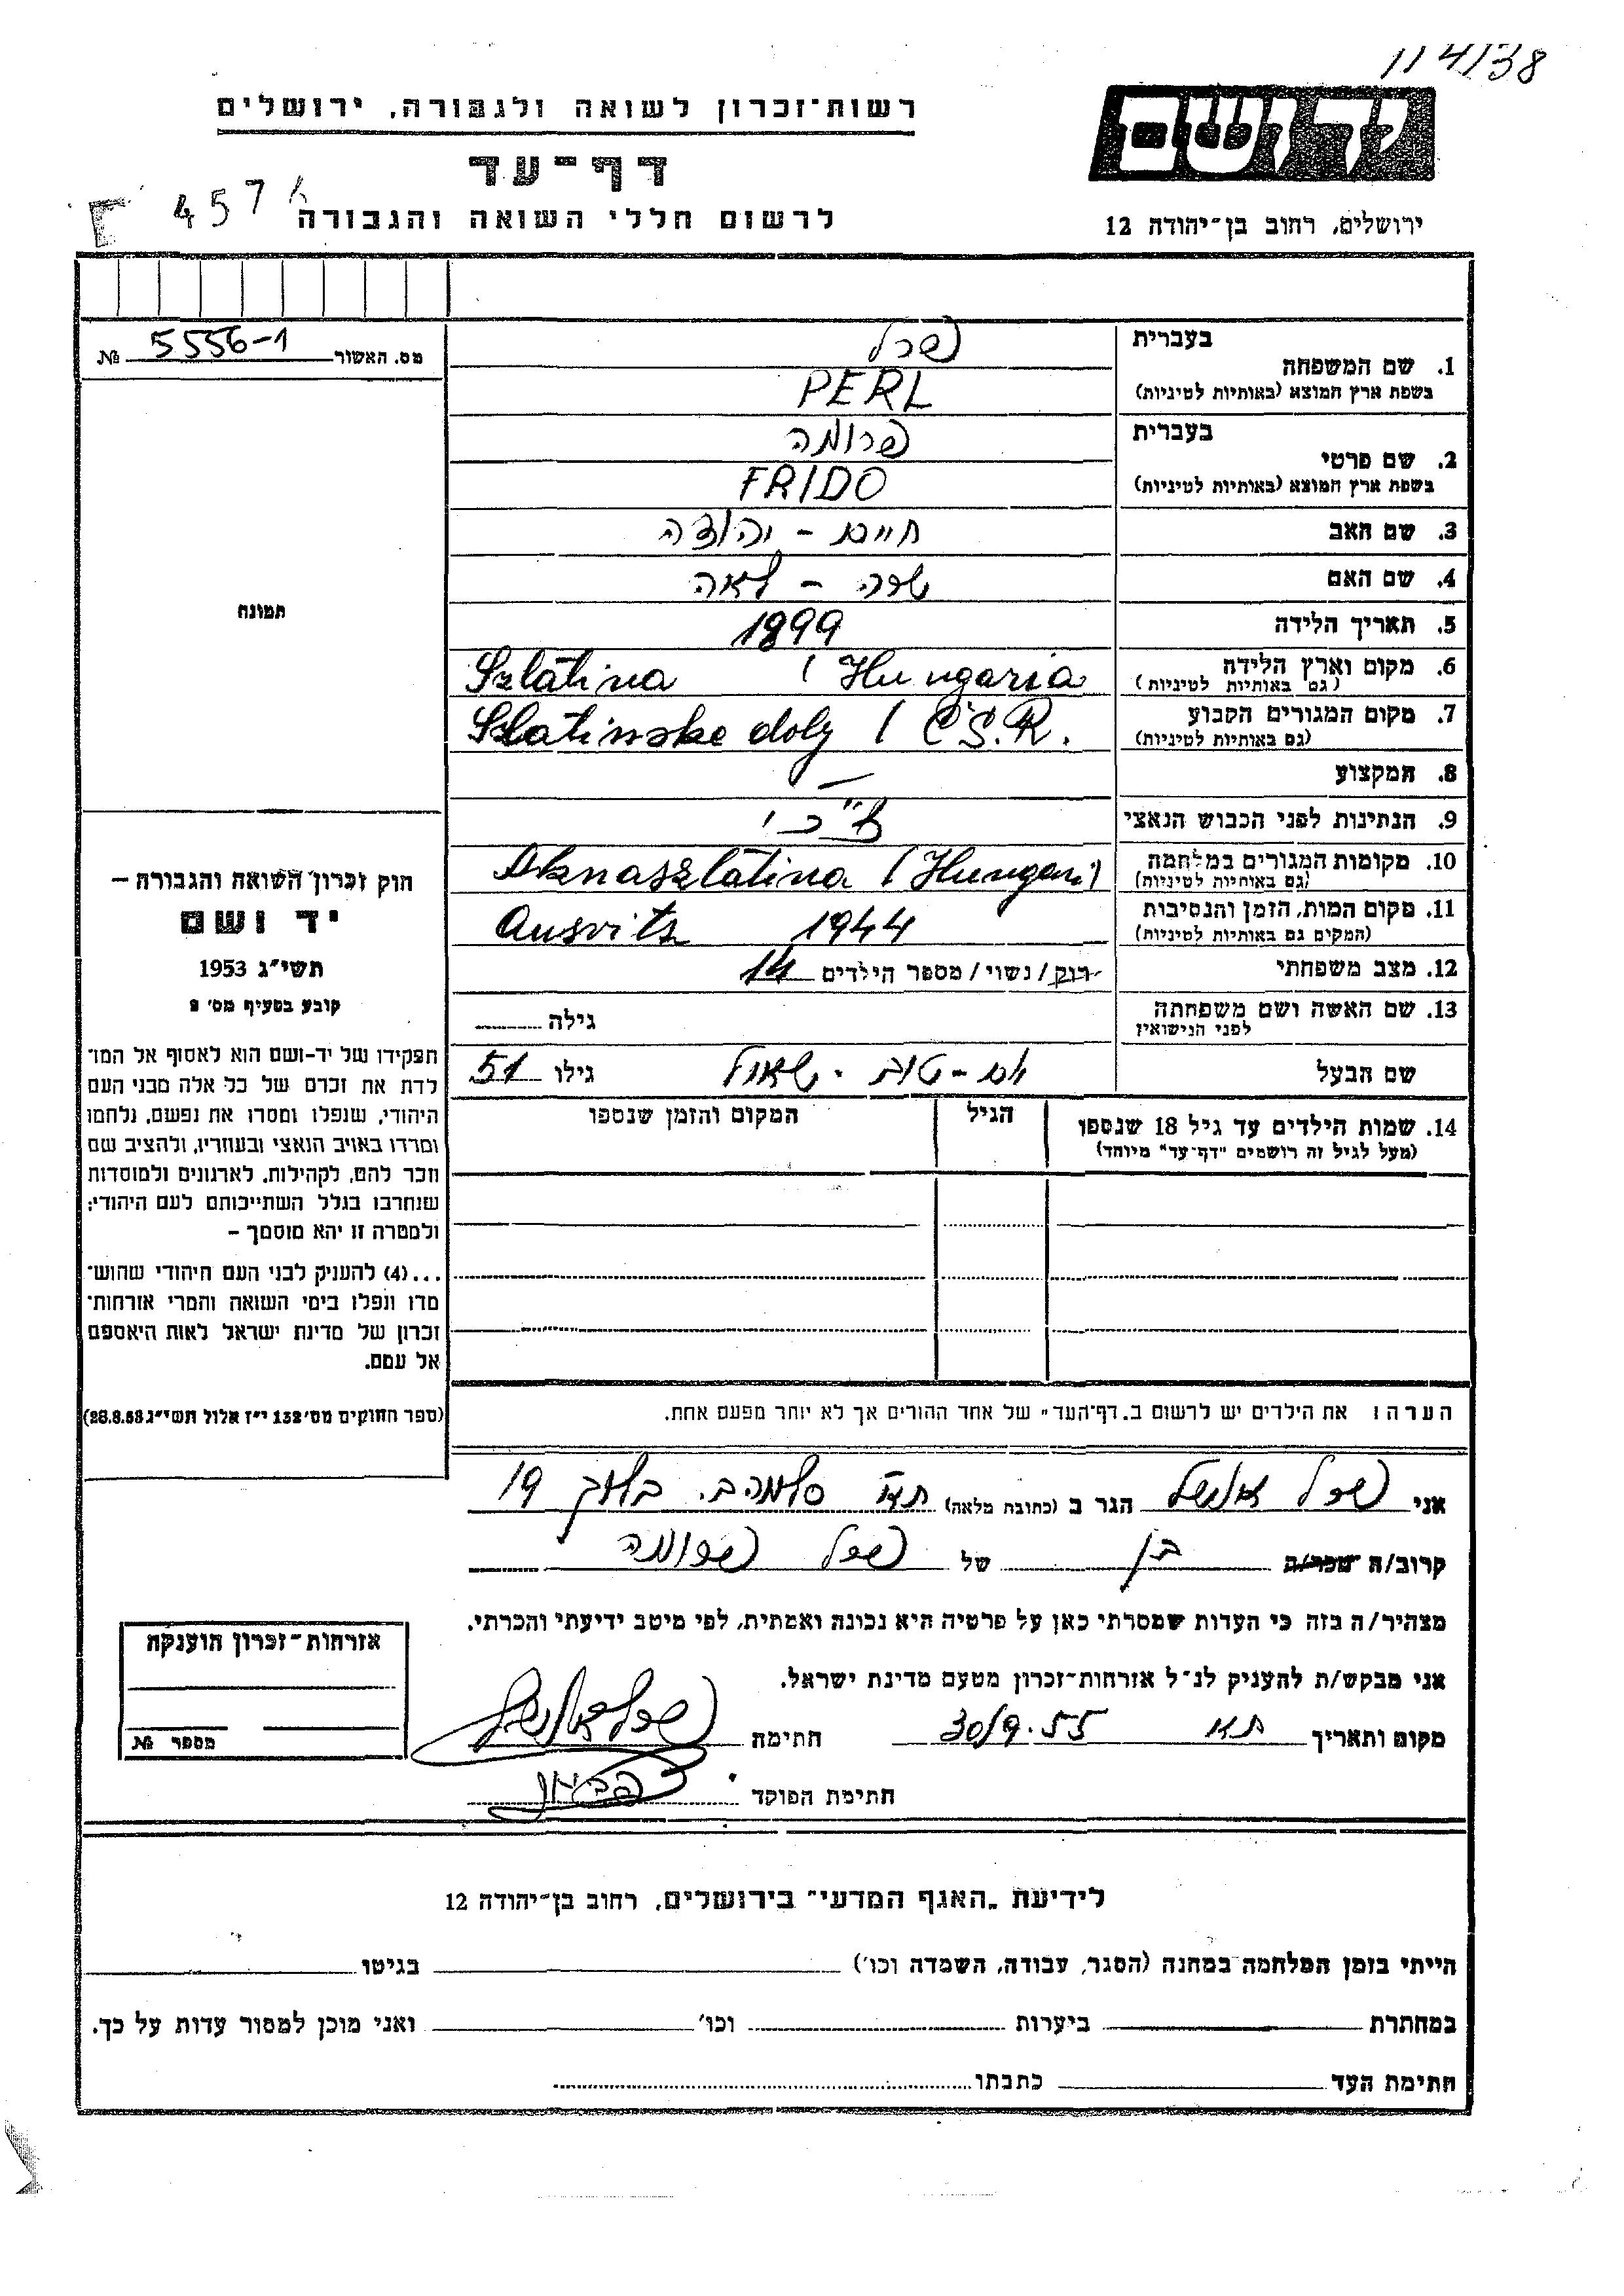 114/38
רשות-זכרון לשואה ולגבורה, ירושלים
יד ושם
דף-עד
457
לרשום חללי השואה והגבורה
ירושלים, רחוב בן-יהודה 12
מס. האשור 5556-1 №
1. שם המשפחה
בעברית פרל
בשפת ארץ המוצא (באותיות לטיניות) PERL
2. שם פרטי
בעברית פרומה
בשפת ארץ המוצא (באותיות לטיניות) FRIDO
3. שם האב חיים - יהודה
4. שם האם שרה - לאה
5. תאריך הלידה 1899
6. מקום וארץ הלידה (גם באותיות לטיניות) Szlatina / Hungaria
7. מקום המגורים הקבוע (גם באותיות לטיניות) Slatinske doly / Č.S.R.
8. המקצוע —
9. הנתינות לפני הכבוש הנאצי צ"כי
10. מקומות המגורים במלחמה (גם באותיות לטיניות) Aknaszlatina (Hungari)
11. מקום המות, הזמן והנסיבות (המקום גם באותיות לטיניות) Ausvits 1944
12. מצב משפחתי רווק / נשוי / מספר הילדים 14
13. שם האשה ושם משפחתה לפני הנישואין גילה
שם הבעל יום-טוב - שאול גילו 51
14. שמות הילדים עד גיל 18 שנספו הגיל המקום והזמן שנספו
(מעל לגיל זה רושמים "דף-עד" מיוחד)
תמונה
חוק זכרון השואה והגבורה –
יד ושם
תשי"ג 1953
קובע בסעיף מס' 2
תפקידו של יד-ושם הוא לאסוף אל המו-
לדת את זכרם של כל אלה מבני העם
היהודי, שנפלו ומסרו את נפשם, נלחמו
ומרדו באויב הנאצי ובעוזריו, ולהציב שם
וזכר להם, לקהילות, לארגונים ולמוסדות
שנחרבו בגלל השתייכותם לעם היהודי;
ולמטרה זו יהא מוסמך –
...(4) להעניק לבני העם היהודי שהוש-
מדו ונפלו בימי השואה והמרי אזרחות-
זכרון של מדינת ישראל לאות היאספם
אל עמם.
(ספר החוקים מס' 132 י"ז אלול תשי"ג 28.8.53)
הערה: את הילדים יש לרשום ב„דף-העד" של אחד ההורים אך לא יותר מפעם אחת.
אני פרל אנשל הגר ב (כתובת מלאה) 19
קרוב/ה מכר/ה בן של פרל פרומה
מצהיר/ה בזה כי העדות שמסרתי כאן על פרטיה היא נכונה ואמתית, לפי מיטב ידיעתי והכרתי.
אני מבקש/ת להעניק לנ"ל אזרחות-זכרון מטעם מדינת ישראל.
מקום ותאריך ת"א 30/9.55 חתימה פרל אנשל
חתימת הפוקד
אזרחות-זכרון הוענקה
מספר №
לידיעת „האגף המדעי" בירושלים, רחוב בן-יהודה 12
הייתי בזמן המלחמה במחנה (הסגר, עבודה, השמדה וכו') בגיטו
במחתרת ביערות וכו' ואני מוכן למסור עדות על כך.
חתימת העד כתבתו